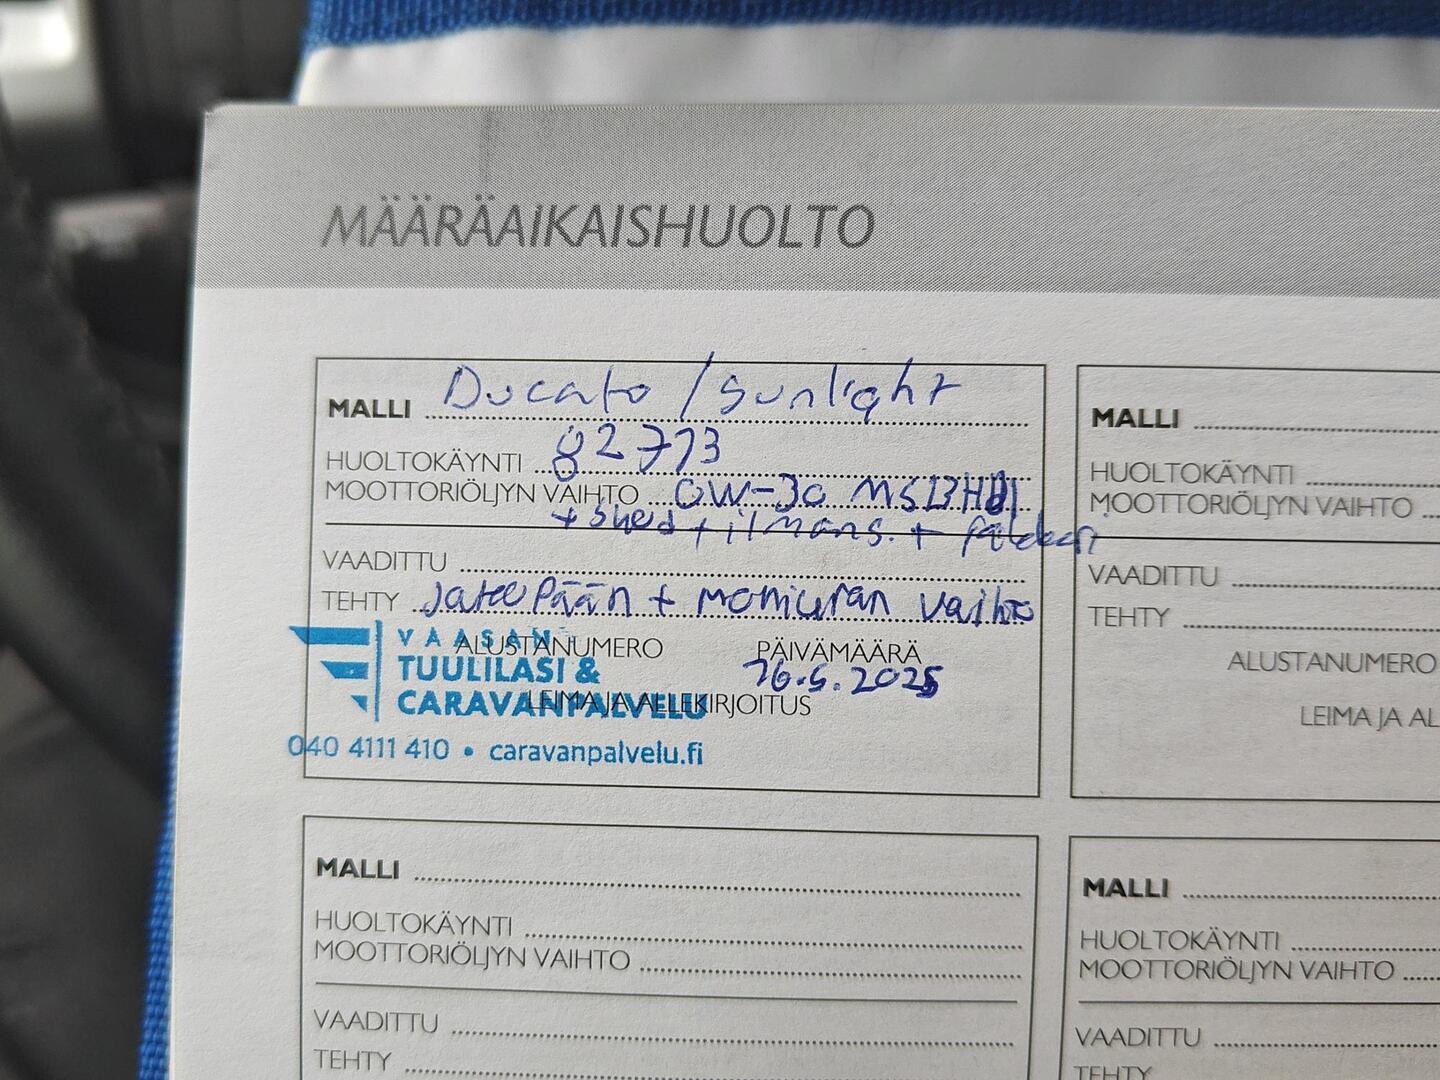 MÄÄRÄAIKAISHUOLTO
MALLI Ducato / Sunlight
HUOLTOKÄYNTI 82773
MOOTTORIÖLJYN VAIHTO 0W-30
+ ilmans. +
VAADITTU
TEHTY vaihto
ALUSTANUMERO PÄIVÄMÄÄRÄ
26.5.2025
LEIMA JA ALLEKIRJOITUS
VAASAN
TUULILASI &
CARAVANPALVELU
040 4111 410 • caravanpalvelu.fi
MALLI
HUOLTOKÄYNTI
MOOTTORIÖLJYN VAIHTO
VAADITTU
TEHTY
ALUSTANUMERO
LEIMA JA AL
MALLI
HUOLTOKÄYNTI
MOOTTORIÖLJYN VAIHTO
VAADITTU
TEHTY
MALLI
HUOLTOKÄYNTI
MOOTTORIÖLJYN VAIHTO
VAADITTU
TEHTY